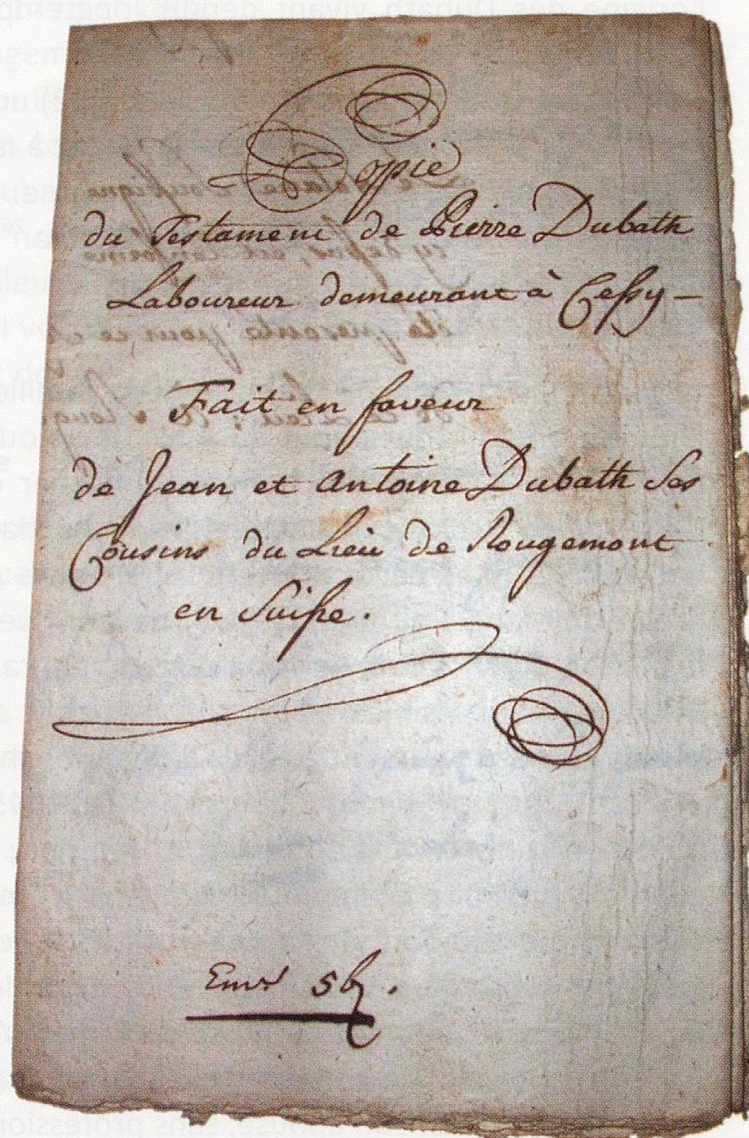 Copie
du Testament de Pierre Dubath
Laboureur demeurant à Cessy —
Fait en faveur
de Jean et Antoine Dubath Ses
Cousins du Lieu de Rougemont
en Suisse.